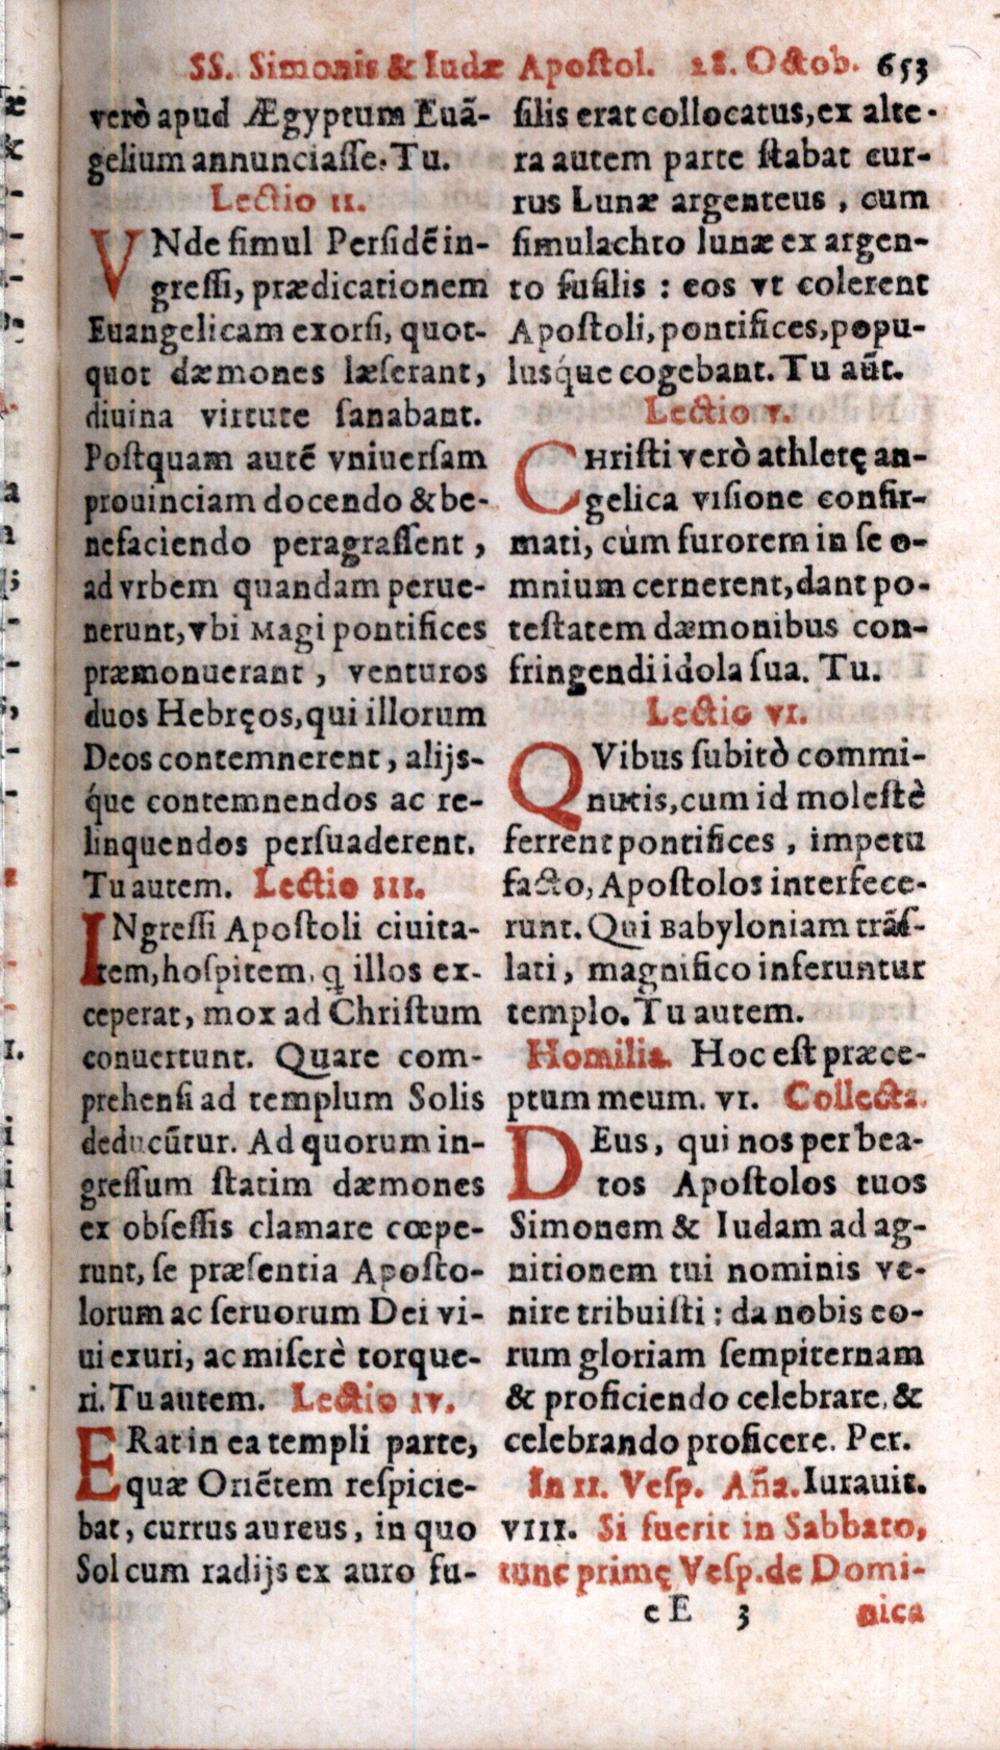 SS. Simonis & Iudæ Apostol. 28. Octob. 653
verò apud Ægyptum Euã-
gelium annunciaſſe. Tu.
Lectio II.
VNde ſimul Perſidẽ in-
greſſi, prædicationem
Euangelicam exorſi, quot-
quot dæmones læſerant,
diuina virtute ſanabant.
Poſtquam autẽ vniuerſam
prouinciam docendo & be-
nefaciendo peragraſſent,
ad vrbem quandam perue-
nerunt, vbi Magi pontifices
præmonuerant, venturos
duos Hebręos, qui illorum
Deos contemnerent, alijs-
q́ue contemnendos ac re-
linquendos perſuaderent.
Tu autem. Lectio III.
INgreſſi Apoſtoli ciuita-
tem, hoſpitem, q illos ex-
ceperat, mox ad Chriſtum
conuertunt. Quare com-
prehenſi ad templum Solis
deducũtur. Ad quorum in-
greſſum ſtatim dæmones
ex obſeſſis clamare cœpe-
runt, ſe præſentia Apoſto-
lorum ac ſeruorum Dei vi-
ui exuri, ac miſerè torque-
ri. Tu autem. Lectio IV.
ERat in ea templi parte,
quæ Oriẽtem reſpicie-
bat, currus aureus, in quo
Sol cum radijs ex auro fu-
ſilis erat collocatus, ex alte-
ra autem parte ſtabat cur-
rus Lunæ argenteus, cum
ſimulachto lunæ ex argen-
to fuſilis : eos vt colerent
Apoſtoli, pontifices, popu-
luſq́ue cogebant. Tu aũt.
Lectio V.
CHriſti verò athletę an-
gelica viſione confir-
mati, cùm furorem in ſe o-
mnium cernerent, dant po-
teſtatem dæmonibus con-
fringendi idola ſua. Tu.
Lectio VI.
QVibus ſubitò commi-
nutis, cum id moleſtè
ferrent pontifices, impetu
facto, Apoſtolos interfece-
runt. Qui Babyloniam trãſ-
lati, magnifico inferuntur
templo. Tu autem.
Homilia. Hoc eſt præce-
ptum meum. VI. Collecta.
DEus, qui nos per bea-
tos Apoſtolos tuos
Simonem & Iudam ad ag-
nitionem tui nominis ve-
nire tribuiſti : da nobis eo-
rum gloriam ſempiternam
& proficiendo celebrare, &
celebrando proficere. Per.
In II. Veſp. Añã. Iurauit.
VIII. Si fuerit in Sabbato,
tunc primę Veſp. de Domi-
eE 3 nica